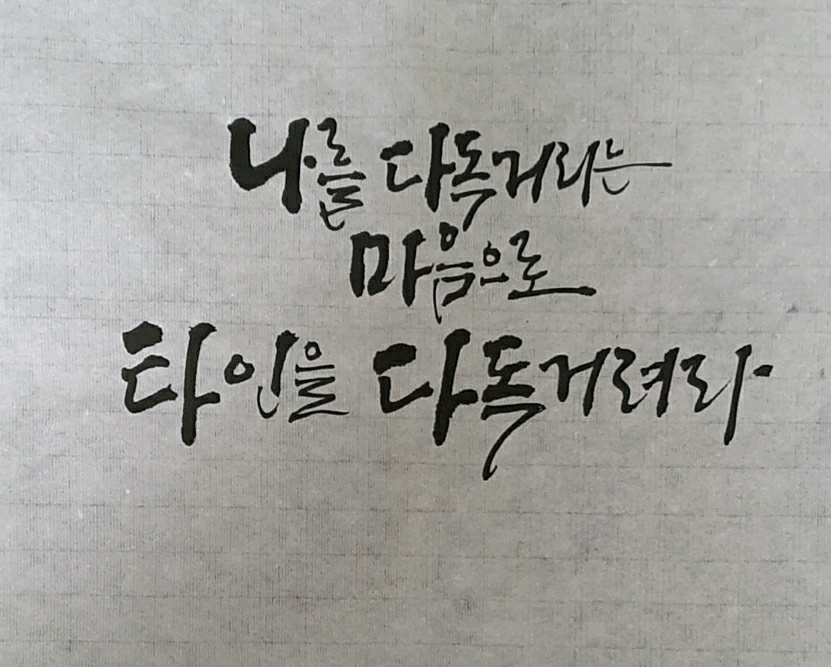 나를 다독거리는
마음으로
타인을 다독거려라